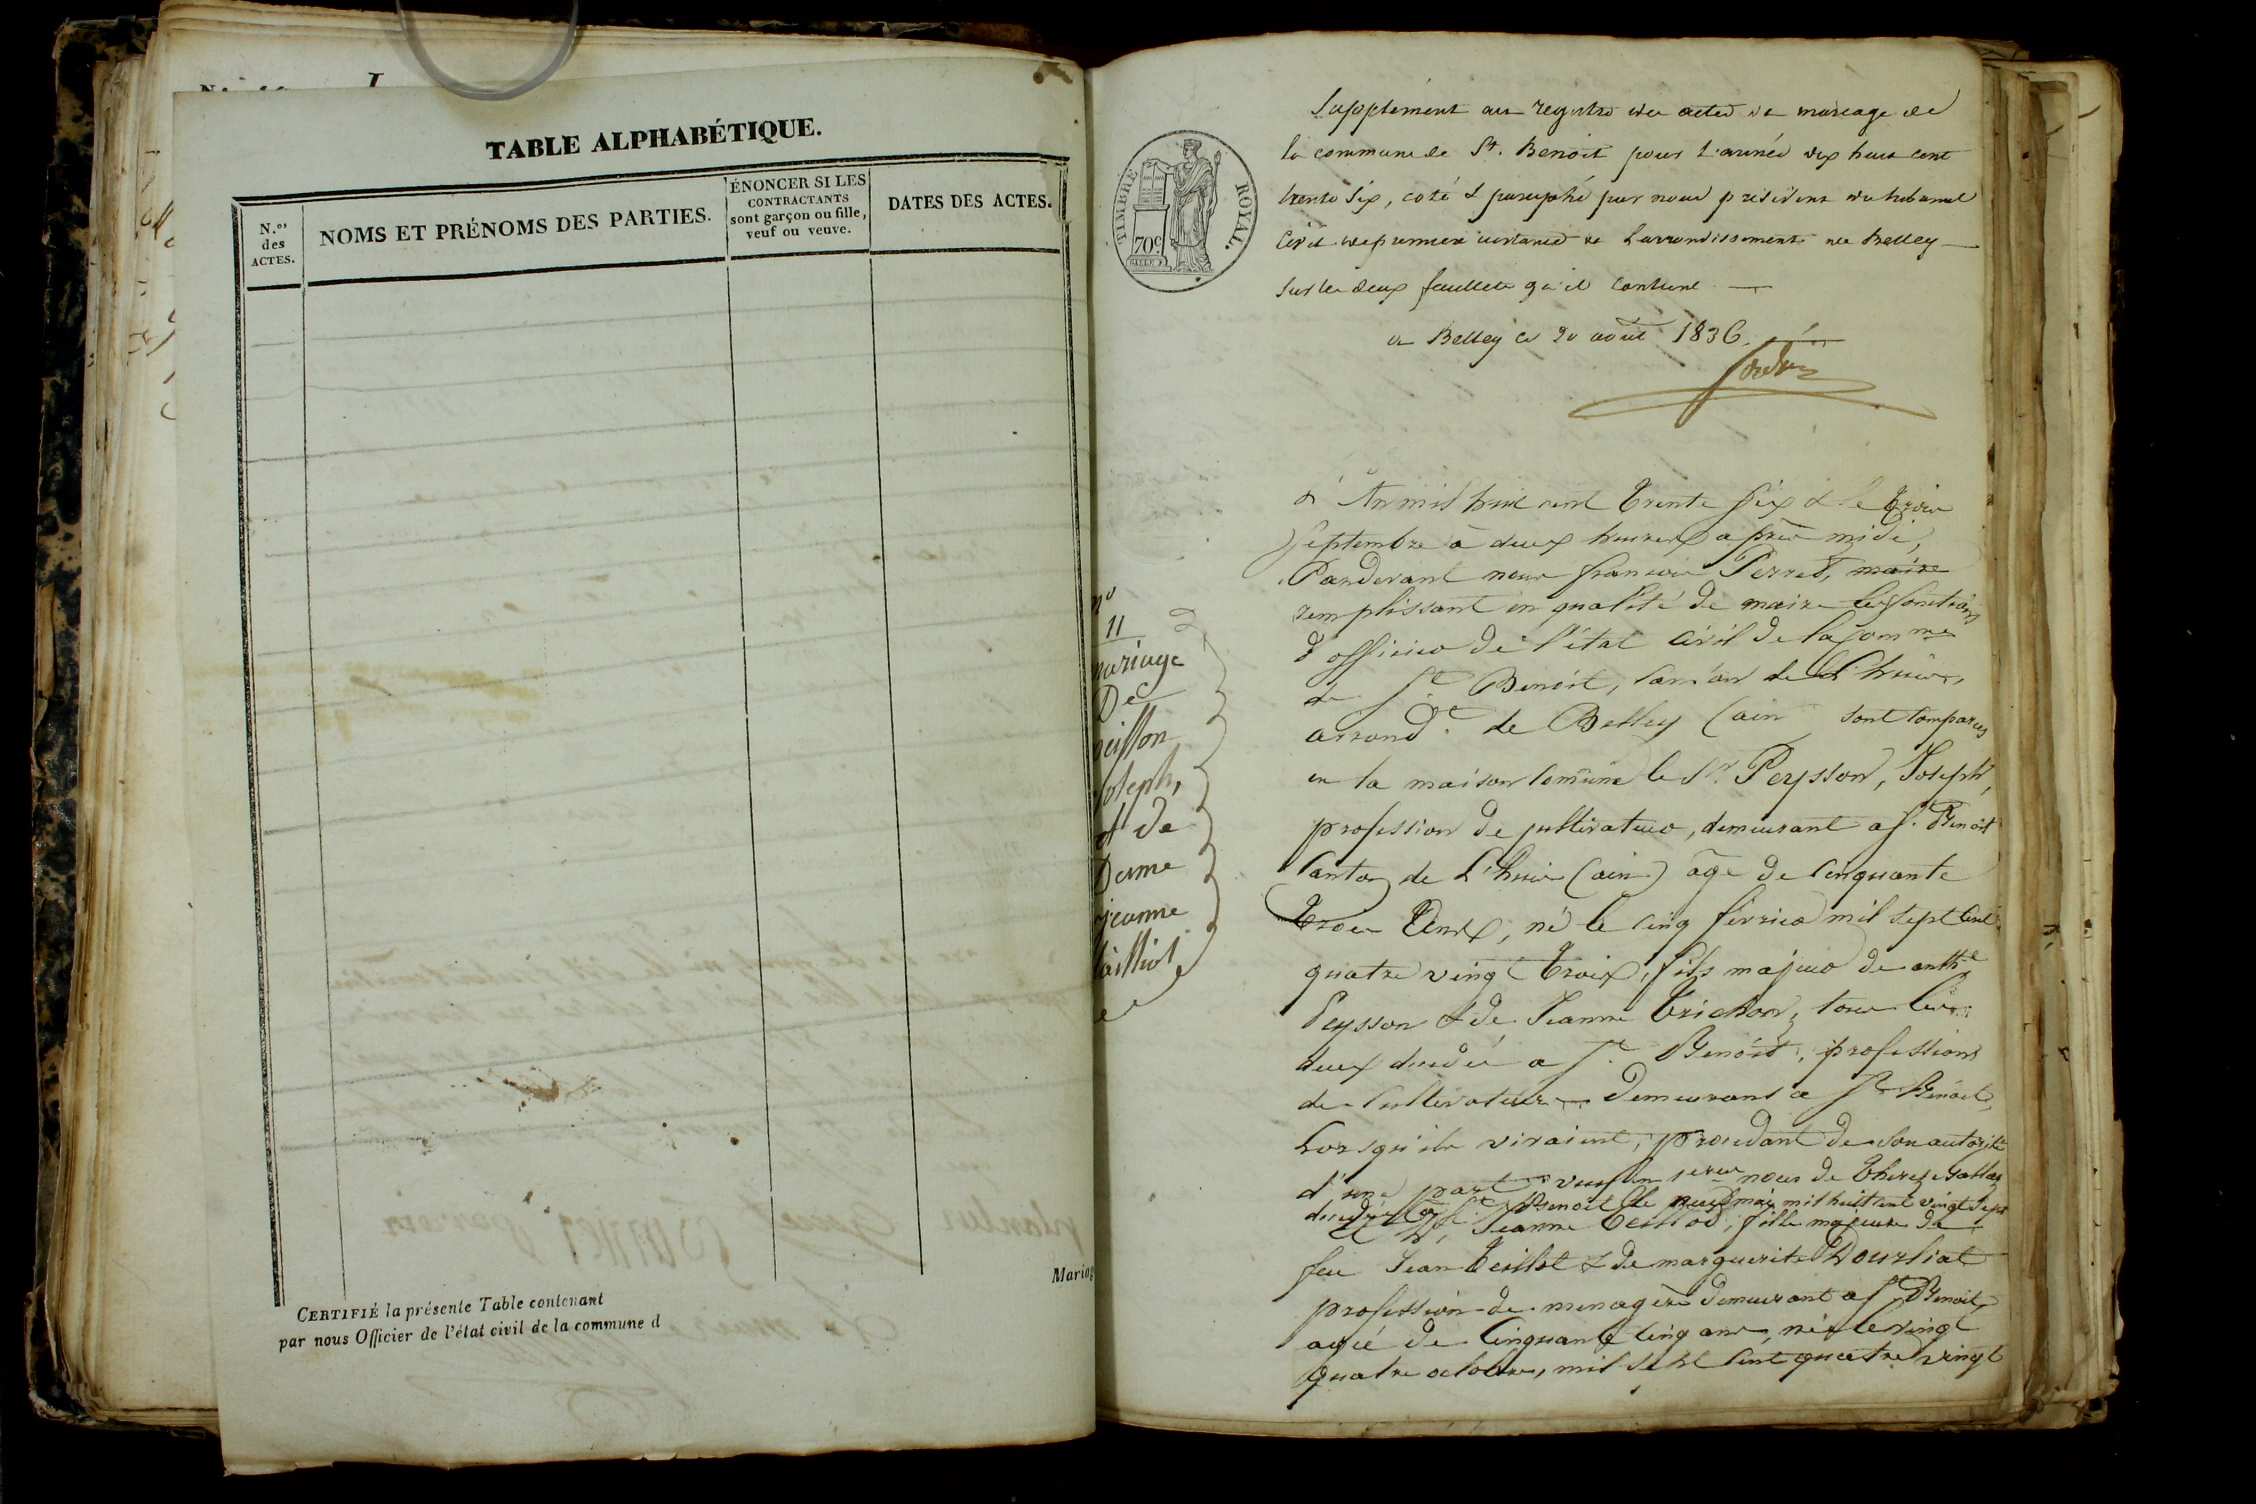 TABLE ALPHABÉTIQUE.
N.os
des
ACTES.
NOMS ET PRÉNOMS DES PARTIES.
ÉNONCER SI LES
CONTRACTANTS
sont garçon ou fille,
veuf ou veuve.
DATES DES ACTES.
CERTIFIÉ la présente Table contenant
par nous Officier de l'état civil de la commune d
Mariag
TIMBRE ROYAL.
70c
Supplément au registre des actes de mariage de
la commune de St. Benoit pour l'année dix huit cent
trente six, coté & paraphé par nous président du tribunal
civil de première instance de l'arrondissement de Belley
sur les deux feuillets qu'il contient
a Belley ce 20 août 1836.
no
11
mariage
De
peisson
joseph,
et de
Dame
jeanne
tailliot
L'An mil huit cent trente six & le trois
Septembre à deux heures après midi,
Pardevant nous françois Perret, maire
remplissant en qualité de maire les fonctions
d'officier de l'état civil de la comme
de St Benoit, canton de L'huis,
arrondt. de Belley (ain sont comparus
en la maison comune le Sr. Peysson, Joseph,
profession de cultivateur, demeurant a St. Benoit
canton de L'huis (ain) âgé de cinquante
trois ans, né le cinq février mil sept cent
quatre vingt trois, fils majeur de anthe
Peysson & de Jeanne Trichon, tous les
deux décédés a St. Benoit, profession
de cultivateur demeurant a St Benoit,
lorsqu'ils vivaient, procédant de son autorité
d'une part veuf en 1eres noces de Therese
décédée a St Benoit le neuf mai mil huit cent vingt sept
Et De. Jeanne teillod, fille majeure de
feu Jean teillot & de marguerite Dourliat
profession de menagère demeurant a St. Benoit,
agée de cinquante cinq ans, née le vingt
quatre octobre, mil sept cent quatre vingt